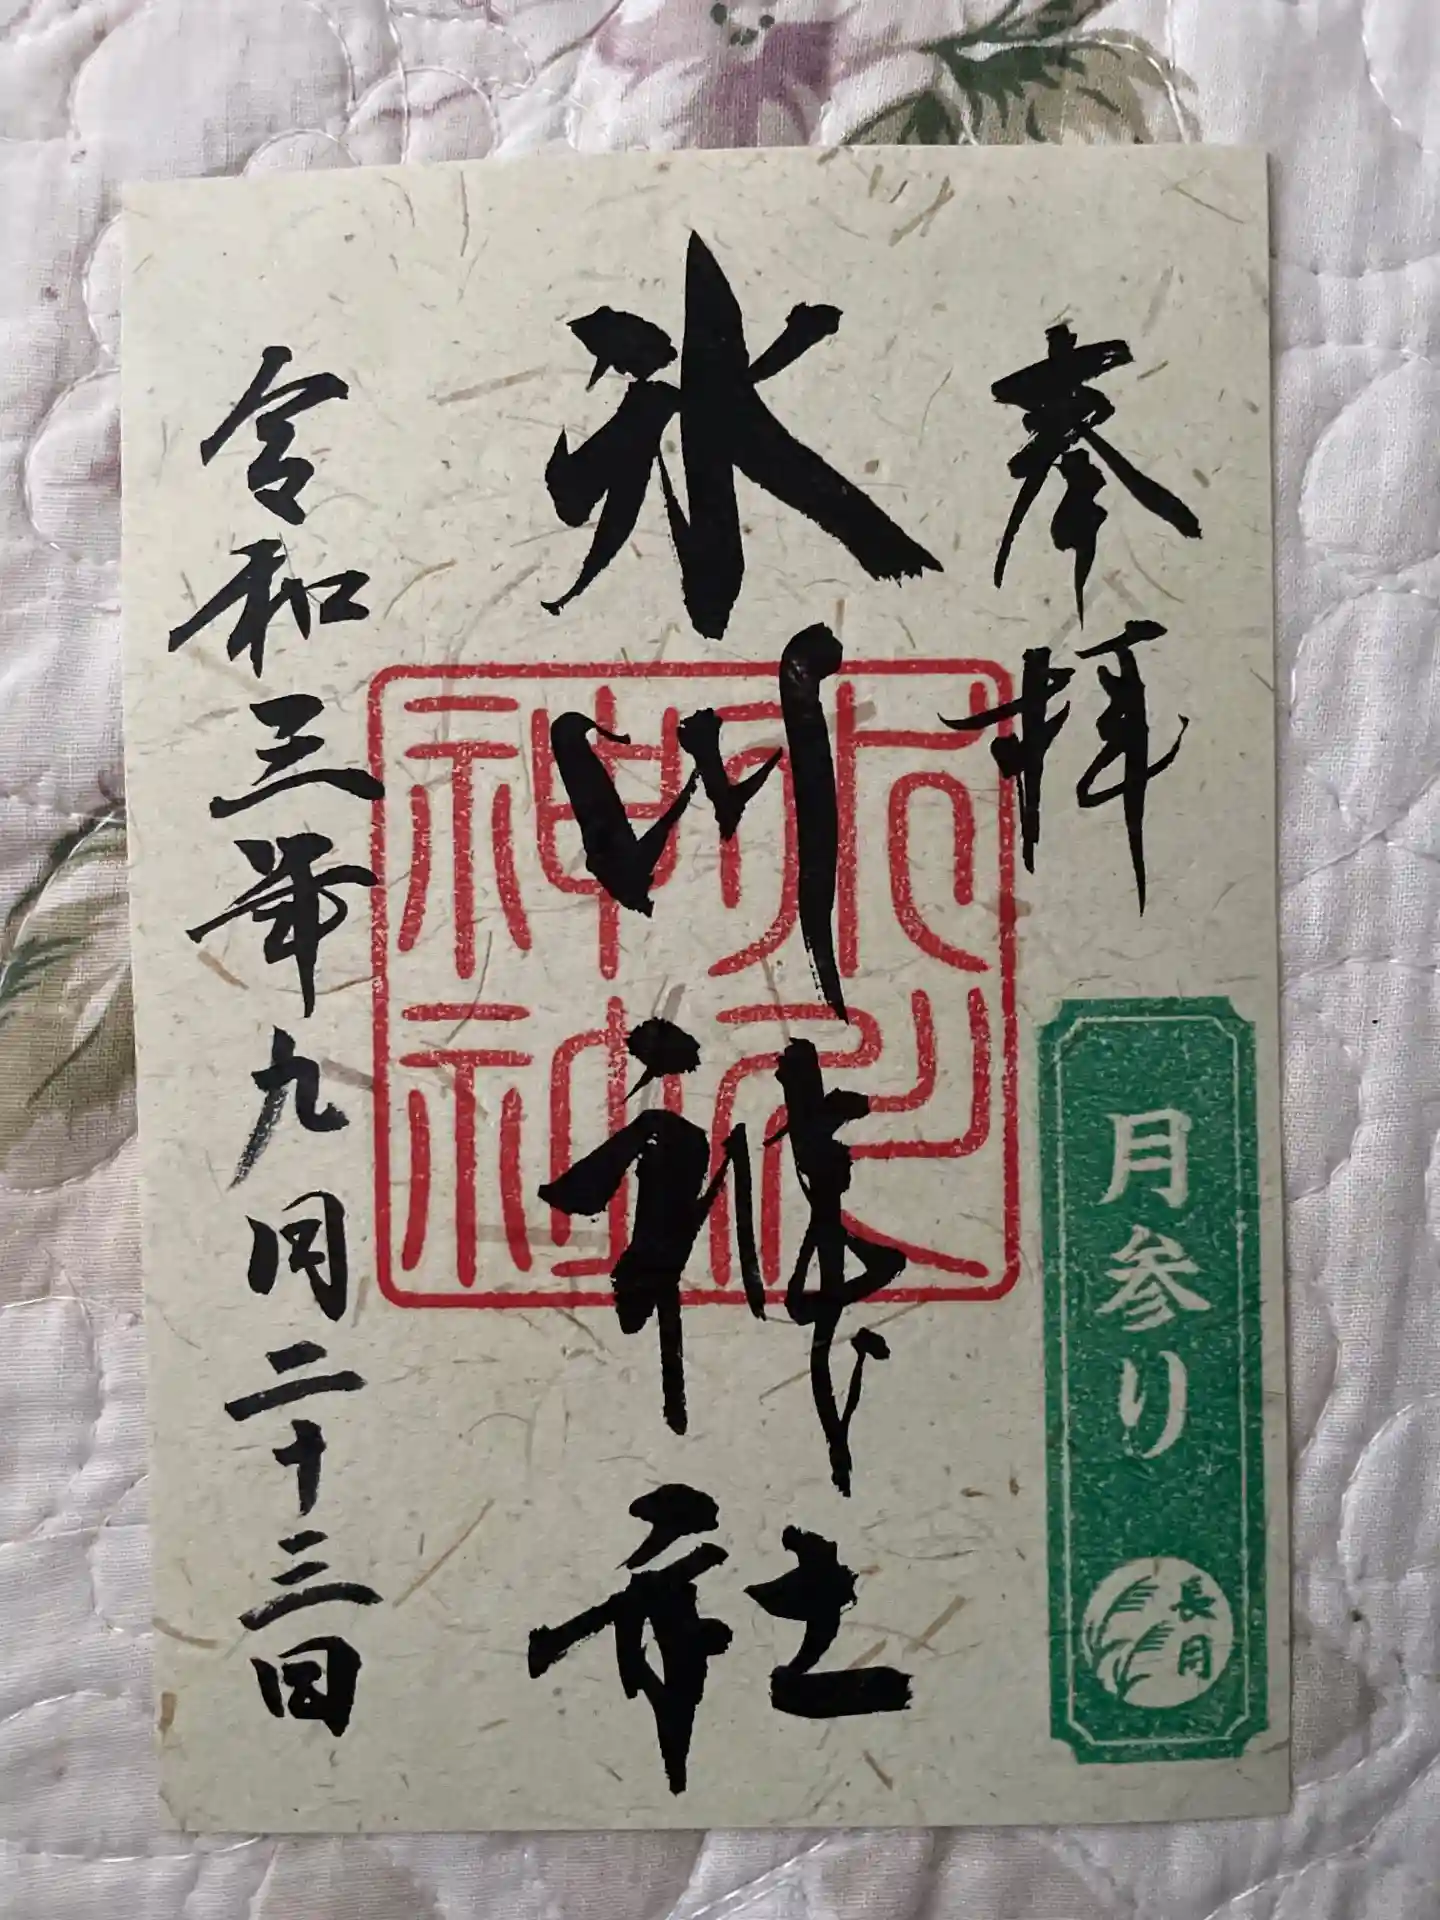 奉拝
月参り
長月
氷川神社
令和三年九月二十三日